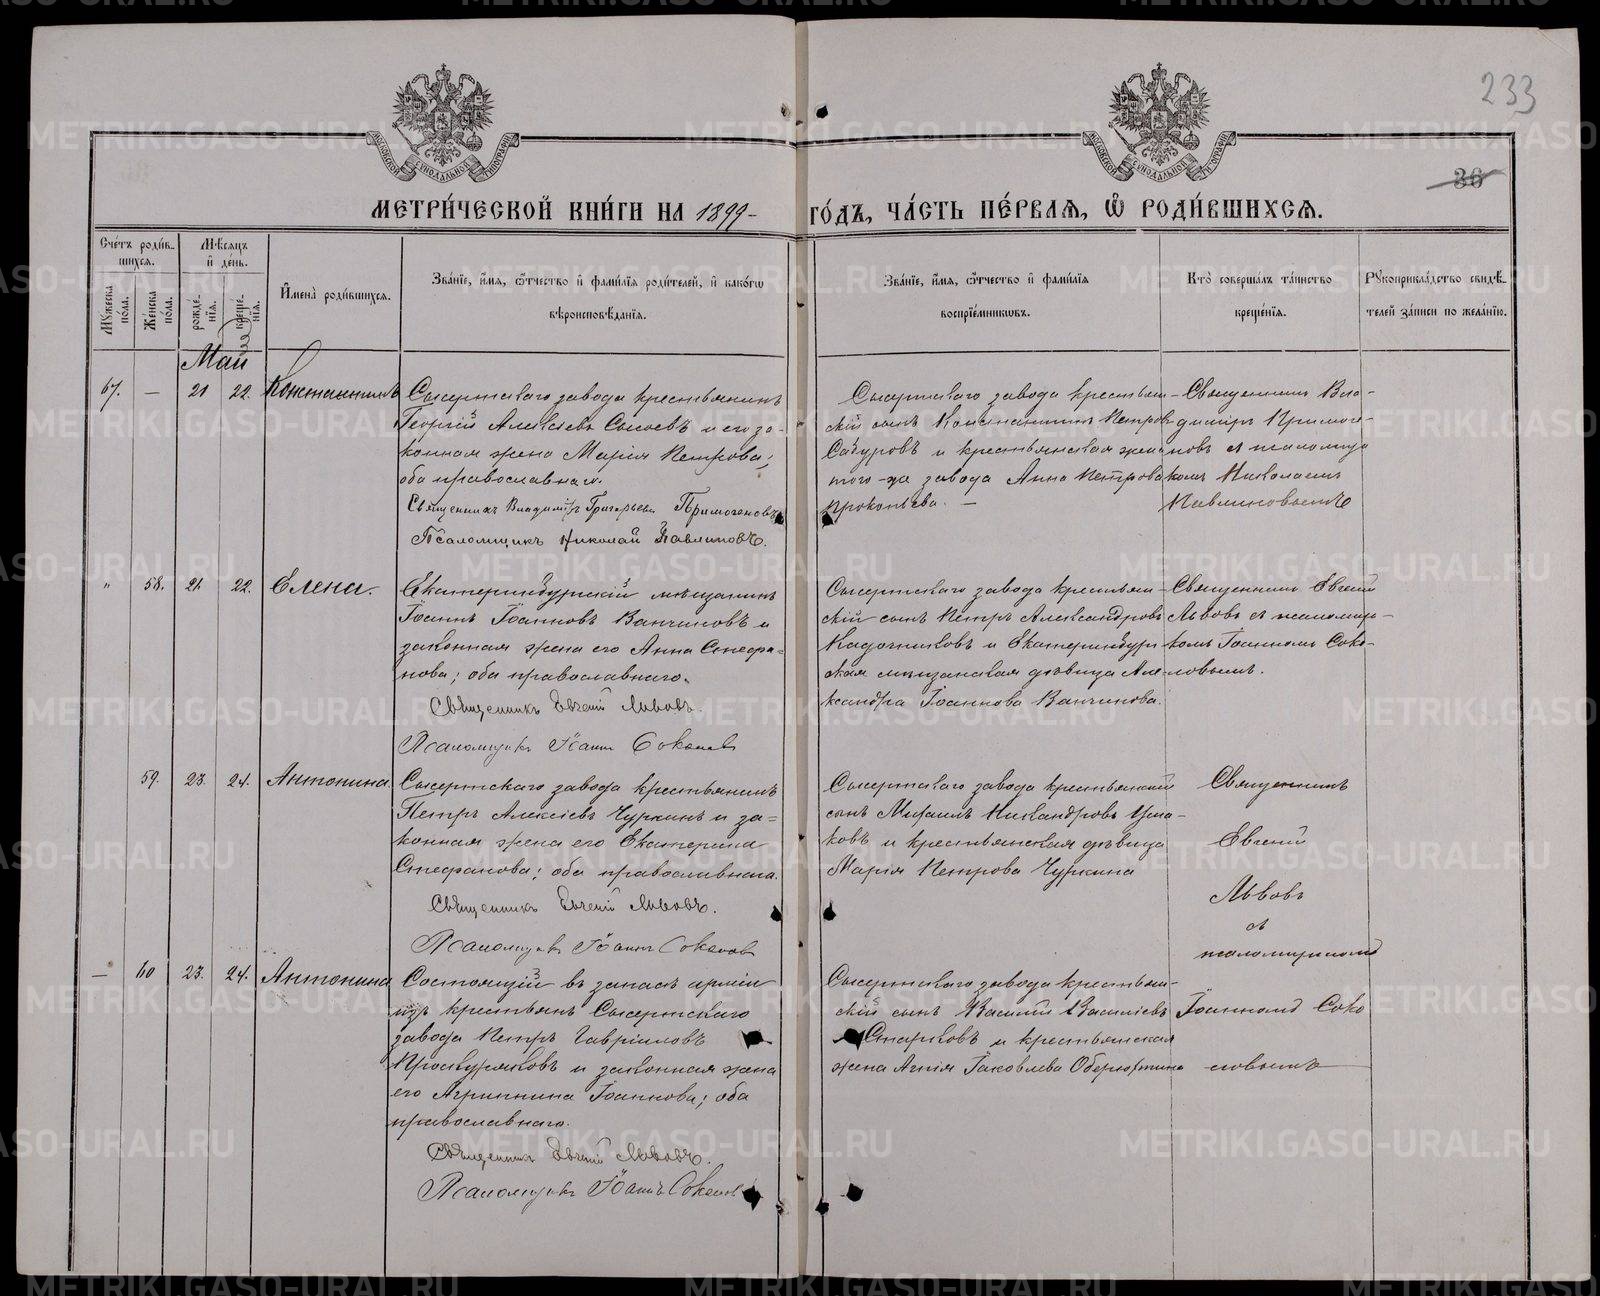 233
36
МЕТРИ́ЧЕСКОЙ КНИ́ГИ НА 1899 ГО́ДЪ, ЧА́СТЬ ПЕ́РВАЯ, Ѡ РОДИ́ВШИХСЯ.
Сче́тъ роди́вшихся.
Мѣ́сяцъ и де́нь.
Мꙋ́жеска по́ла.
Же́нска по́ла.
рожде́нїя.
креще́нїя.
И҆мена̀ роди́вшихся.
Зва́нїе, и҆́мя, ѻ҆́тчество и҆ фами́лїя роди́телей, и҆ како́гѡ вѣроисповѣ́данїя.
Зва́нїе, и҆́мя, ѻ҆́тчество и҆ фами́лїя воспрїе́мниковъ.
Кто̀ соверша́лъ та́инство креще́нїя.
Рꙋкоприкла́дство свидѣ́телей за́писи по жела́нїю.
Май
57. — 21 22. Константинъ
Сысертскаго завода крестьянинъ
Георгій Алексѣевъ Сысоевъ и его за-
конная жена Марія Петрова;
оба православнаго.
Священникъ Владиміръ Григорьевъ Примогеновъ
Псаломщикъ Николай Павлиновъ.
Сысертскаго завода крестьян-
скій сынъ Константинъ Петровъ
Сабуровъ и крестьянская жена
того-же завода Анна Петрова
Прокопьева. —
Священникъ Вла-
диміръ Примоге-
новъ съ псаломщи
комъ Николаемъ
Павлиновымъ
" 58. 21. 22. Елена.
Екатеринбургскій мѣщанинъ
Іоаннъ Іоанновъ Ванчиновъ и
законная жена его Анна Стефа-
нова; оба православнаго.
Священникъ Евгеній Львовъ.
Псаломщикъ Іоаннъ Соколовъ
Сысертскаго завода крестьян-
скій сынъ Петръ Александровъ
Кадочниковъ и Екатеринбург-
ская мѣщанская дѣвица Але-
ксандра Іоаннова Ванчинова.
Священникъ Евгеній
Львовъ съ псаломщи-
комъ Іоанномъ Соко-
ловымъ.
59. 23. 24. Антонина.
Сысертскаго завода крестьянинъ
Петръ Алексѣевъ Чуркинъ и за-
конная жена его Екатерина
Стефанова; оба православнаго.
Священникъ Евгеній Львовъ.
Псаломщикъ Іоаннъ Соколовъ
Сысертскаго завода крестьянскій
сынъ Михаилъ Никандровъ
и крестьянская дѣвица
Марія Петрова Чуркина
Священникъ
Евгеній
Львовъ
съ
псаломщикомъ
Іоанномъ Соко
ловымъ
— 60 23. 24. Антонина
Состоящій въ запасѣ арміи
изъ крестьянъ Сысертскаго
завода Петръ Гавріиловъ
Проскуряковъ и законная жена
его Агриппина Іоаннова; оба
православнаго.
Священникъ Евгеній Львовъ.
Псаломщикъ Іоаннъ Соколовъ
Сысертскаго завода крестьян-
скій сынъ Василій Василіевъ
Старковъ и крестьянская
жена Агнія Іаковлева Оберюхтина
METRIKI.GASO-URAL.RU